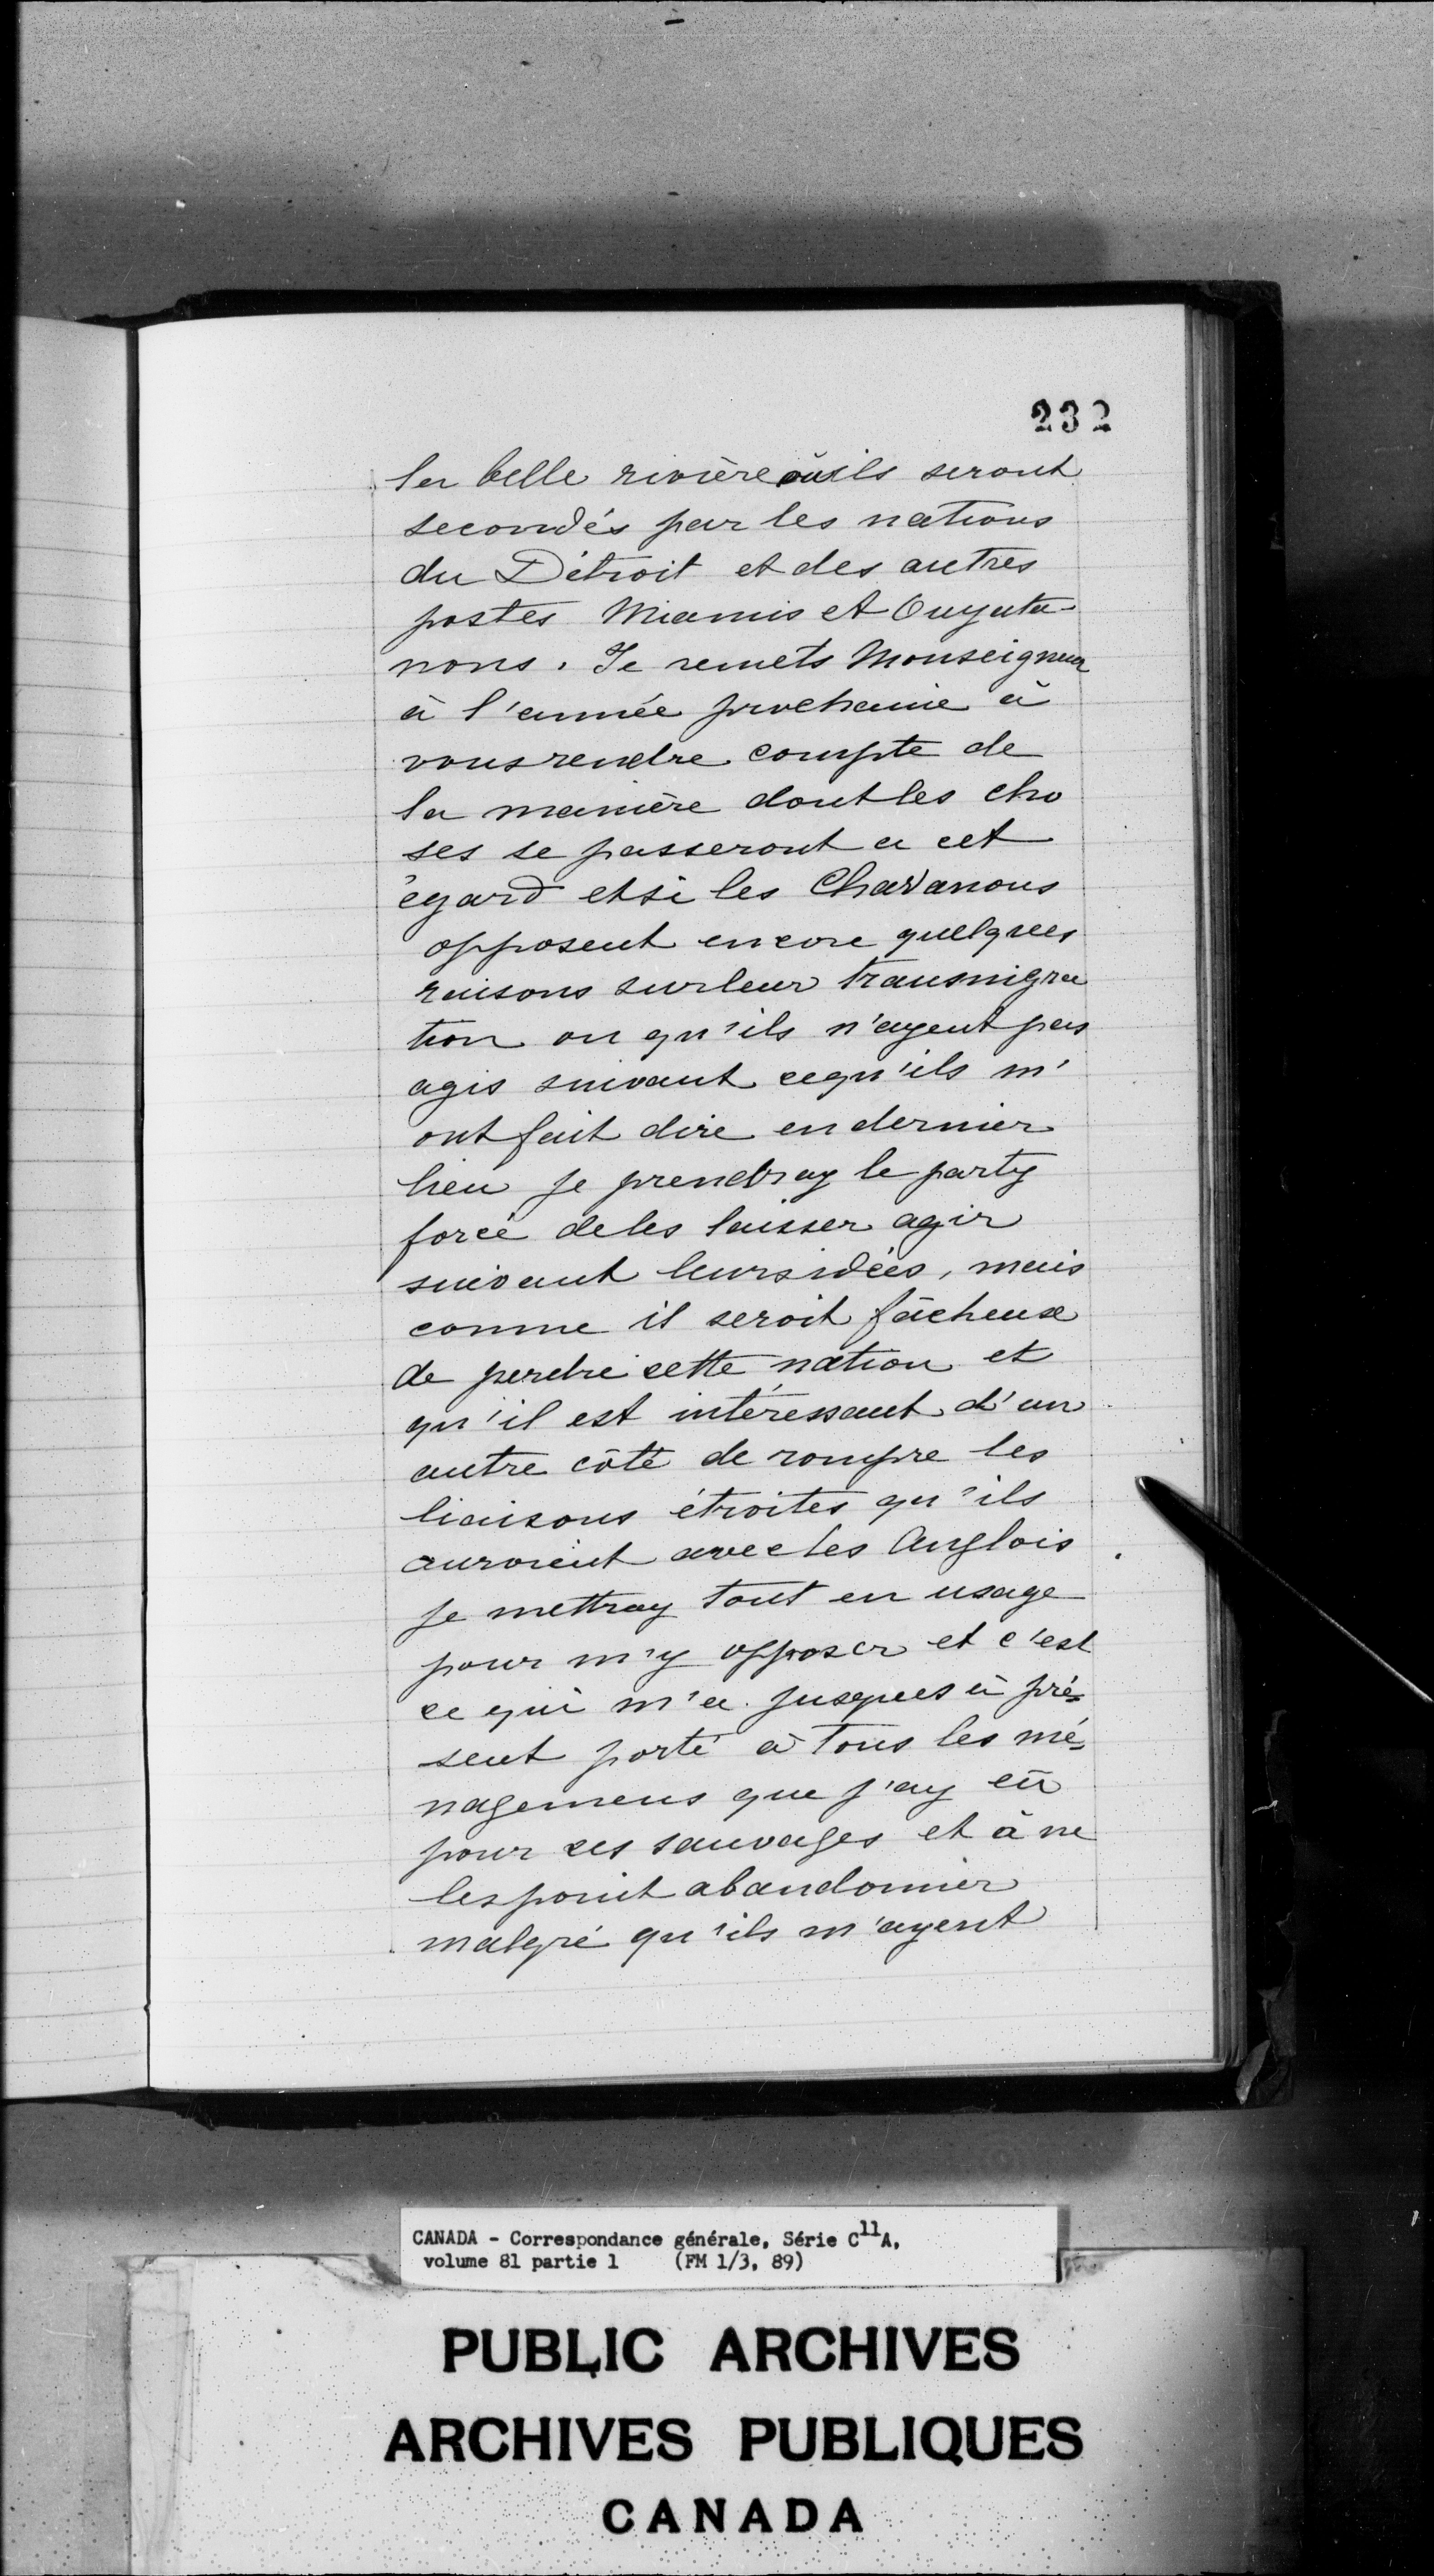 232
la belle rivière où ils seront
secondés par les nations
du Détroit et des autres
postes Miamis et Ouyata-
nons. Je remets Monseigneur
à l'année prochaine à
vous rendre compte de
la manière dont les cho
ses se passeront a cet
égard et si les Chavanons
opposent encore quelques
raisons sur leur transmigra
tion ou qu'ils n'ayent pas
agis suivant ce qu'ils m'
ont fait dire en dernier
lieu je prendray le party
forcé de les laisser agir
suivant leurs idées, mais
comme il seroit fâcheux
de perdre cette nation et
qu'il est intéressant d'un
autre côté de rompre les
liaisons étroites qu'ils
auroient avec les Anglois
je mettray tout en usage
pour m'y opposer et c'est
ce qui m'a jusques à pré-
sent porté à tous les mé-
nagemens que j'ay eû
pour ces sauvages et à ne
les point abandonner
malgré qu'ils m'ayent
CANADA - Correspondance générale, Série C11A,
volume 81 partie 1 (FM 1/3, 89)
PUBLIC ARCHIVES
ARCHIVES PUBLIQUES
CANADA